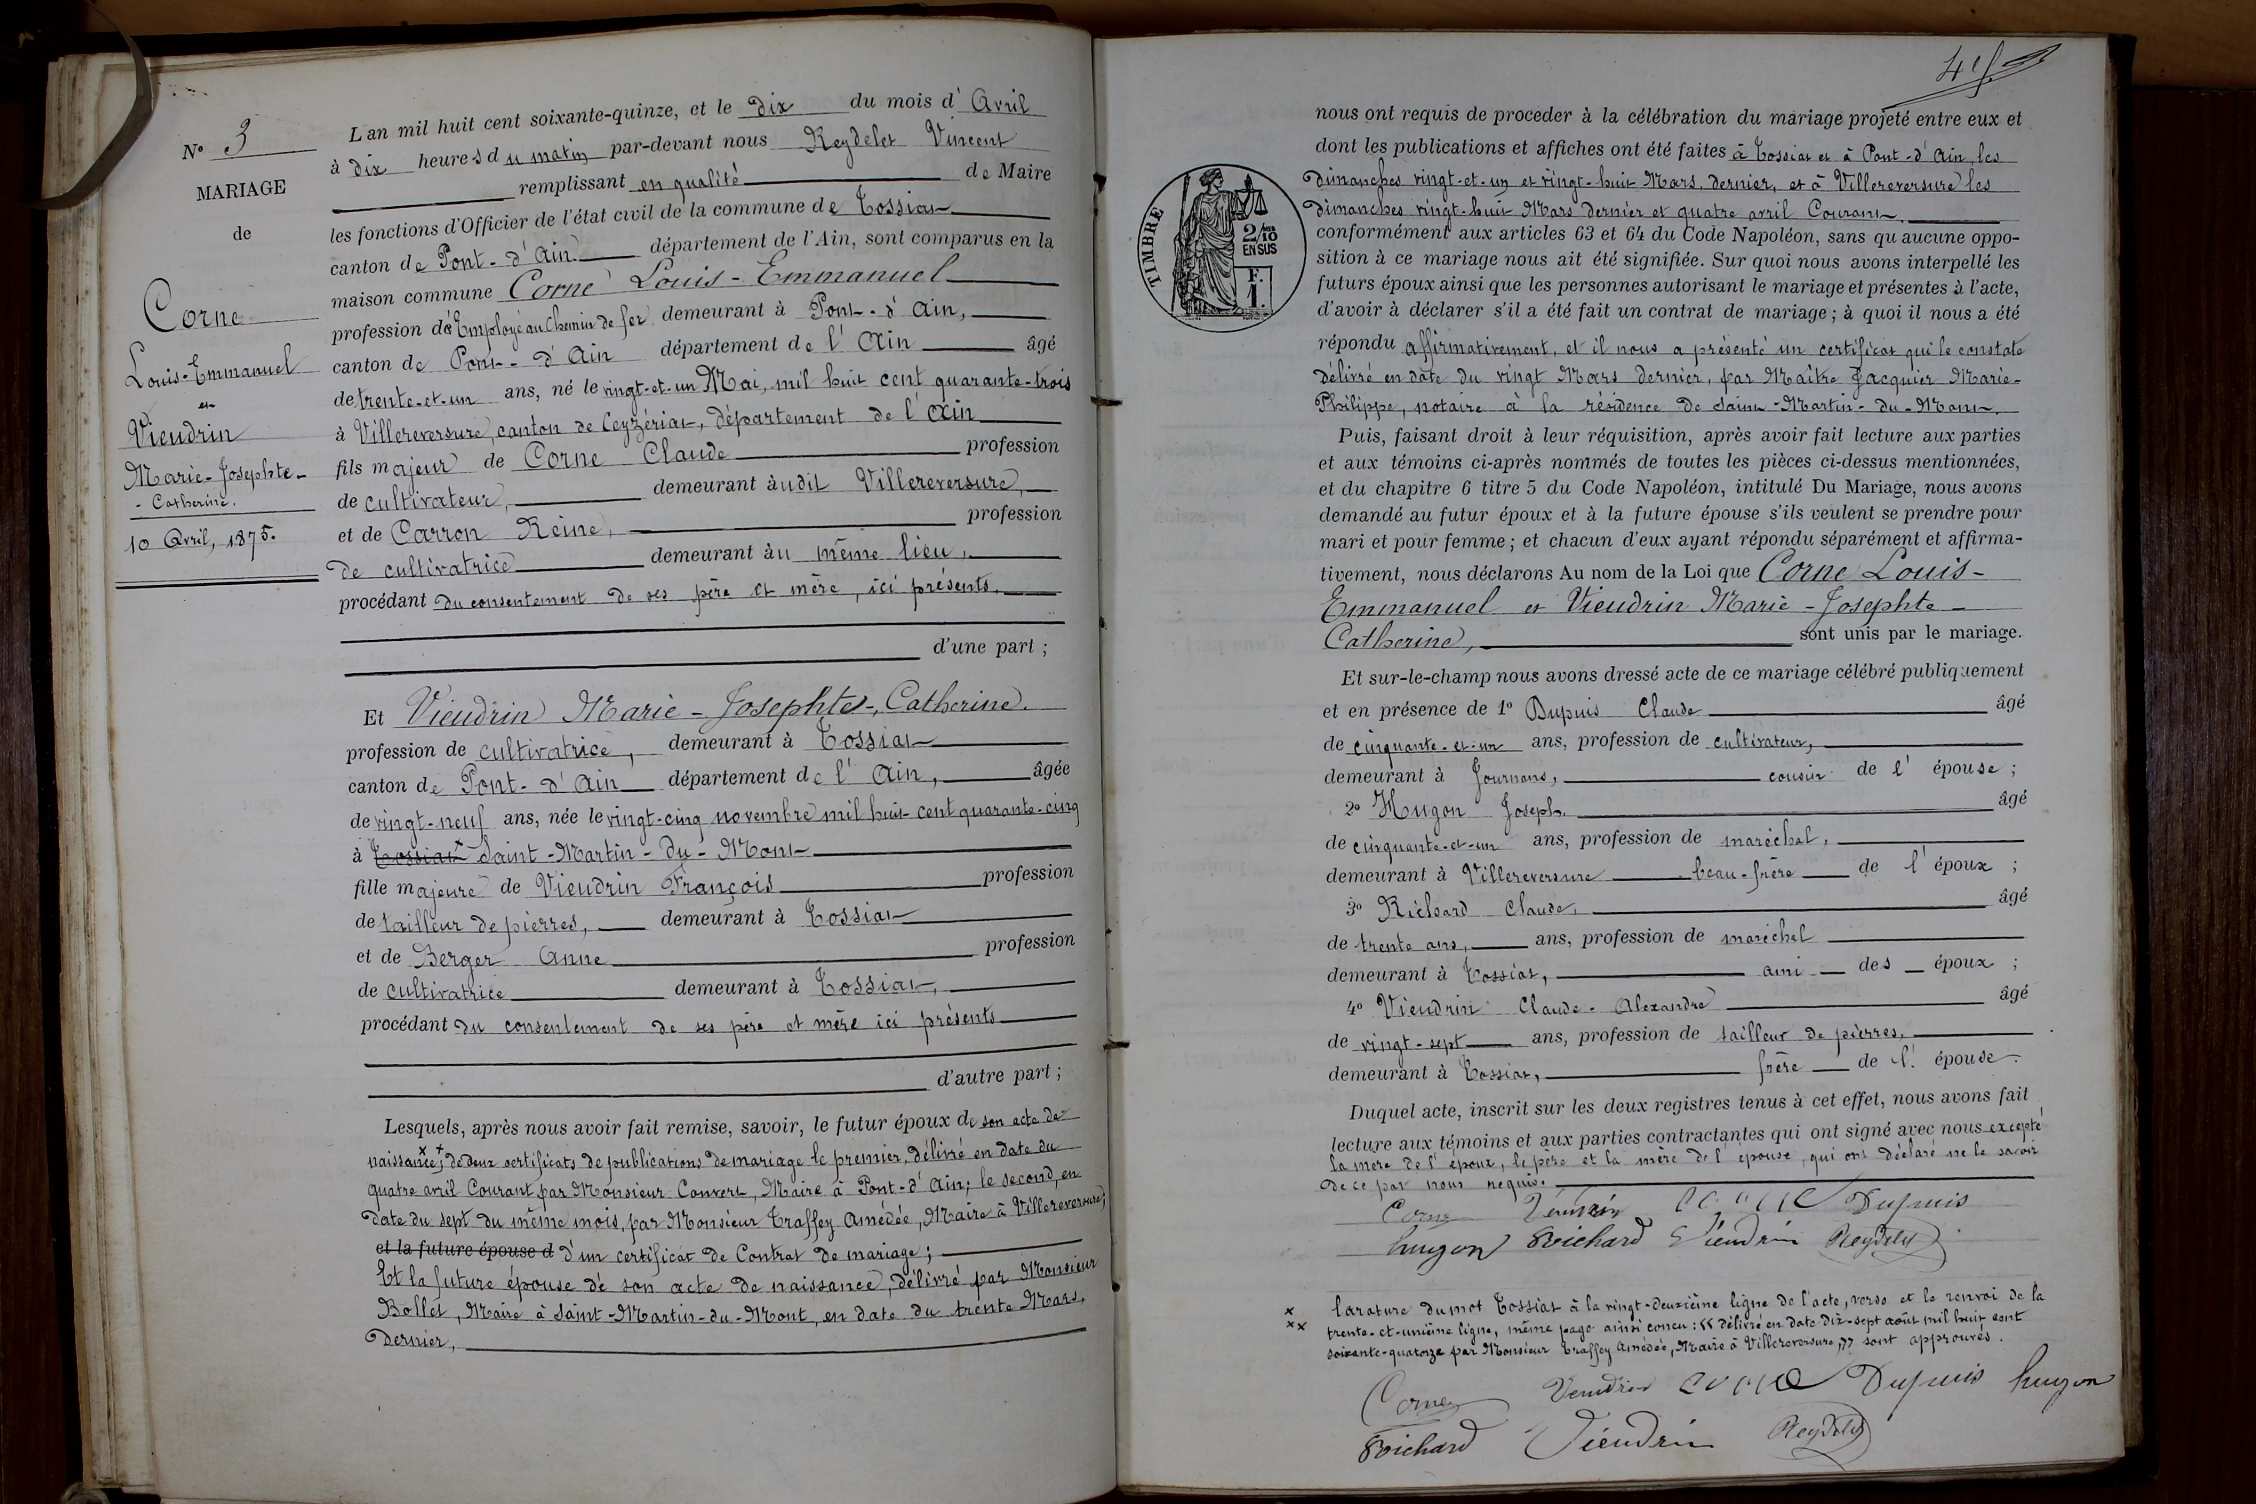 N° 3
MARIAGE
de
Corne
Louis-Emmanuel
et
Vieudrin
Marie-Josephte-
-Catherine.
10 Avril, 1875.
L'an mil huit cent soixante-quinze, et le dix du mois d'Avril
à dix heures du matin par-devant nous Reydelet Vincent
remplissant en qualité de Maire
les fonctions d'Officier de l'état civil de la commune de Tossiat
canton de Pont-d'Ain département de l'Ain, sont comparus en la
maison commune Corne Louis-Emmanuel
profession d'Employé au Chemin de fer demeurant à Pont-d'Ain,
canton de Pont-d'Ain département de l'Ain âgé
de trente-et-un ans, né le vingt-et-un Mai, mil huit cent quarante-trois
à Villereversure, canton de Ceyzériat, département de l'Ain
fils majeur de Corne Claude profession
de cultivateur, demeurant audit Villereversure,
et de Carron Reine, profession
de cultivatrice demeurant au même lieu,
procédant du consentement de ses père et mère, ici présents.
d'une part ;
Et Vieudrin Marie-Josephte-Catherine.
profession de cultivatrice, demeurant à Tossiat
canton de Pont-d'Ain département de l'Ain, âgée
de vingt-neuf ans, née le vingt-cinq novembre mil huit cent quarante-cinq
à Tossiat x Saint-Martin-du-Mont
fille majeure de Vieudrin François profession
de tailleur de pierres, demeurant à Tossiat
et de Berger Anne profession
de cultivatrice demeurant à Tossiat,
procédant du consentement de ses père et mère ici présents
d'autre part ;
Lesquels, après nous avoir fait remise, savoir, le futur époux de son acte de
naissance; x x de deux certificats de publications de mariage le premier, délivré en date du
quatre avril Courant par Monsieur Convert, Maire à Pont-d'Ain; le second, en
date du sept du même mois, par Monsieur Traffey Amédée, Maire à Villereversure;
et la future épouse d d'un certificat de Contrat de mariage;
Et la future épouse de son acte de naissance, délivré par Monsieur
Bollet, Maire à Saint-Martin-du-Mont, en date du trente Mars,
Dernier,
TIMBRE
2/10
EN SUS
F.
1.
nous ont requis de procéder à la célébration du mariage projeté entre eux et
dont les publications et affiches ont été faites à Tossiat et à Pont-d'Ain, les
dimanches vingt-et-un et vingt-huit Mars, dernier, et à Villereversure les
dimanches vingt-huit Mars dernier et quatre avril Courant,
conformément aux articles 63 et 64 du Code Napoléon, sans qu'aucune oppo-
sition à ce mariage nous ait été signifiée. Sur quoi nous avons interpellé les
futurs époux ainsi que les personnes autorisant le mariage et présentes à l'acte,
d'avoir à déclarer s'il a été fait un contrat de mariage ; à quoi il nous a été
répondu affirmativement, et il nous a présenté un certificat qui le constate
délivré en date du vingt Mars dernier, par Maître Jacquier Marie-
Philippe, notaire à la résidence de Saint-Martin-du-Mont.
Puis, faisant droit à leur réquisition, après avoir fait lecture aux parties
et aux témoins ci-après nommés de toutes les pièces ci-dessus mentionnées,
et du chapitre 6 titre 5 du Code Napoléon, intitulé Du Mariage, nous avons
demandé au futur époux et à la future épouse s'ils veulent se prendre pour
mari et pour femme ; et chacun d'eux ayant répondu séparément et affirma-
tivement, nous déclarons Au nom de la Loi que Corne Louis-
Emmanuel et Vieudrin Marie-Josephte-
Catherine, sont unis par le mariage.
Et sur-le-champ nous avons dressé acte de ce mariage célébré publiquement
et en présence de 1° Dupuis Claude âgé
de cinquante-et-un ans, profession de cultivateur,
demeurant à Journans, cousin de l'épouse ;
2° Hugon Joseph, âgé
de cinquante-et-un ans, profession de maréchal,
demeurant à Villereversure beau-frère de l'époux ;
3° Richard Claude, âgé
de trente ans, ans, profession de maréchal
demeurant à Tossiat, ami des époux ;
4° Vieudrin Claude-Alexandre âgé
de vingt-sept ans, profession de tailleur de pierres,
demeurant à Tossiat, frère de l'épouse.
Duquel acte, inscrit sur les deux registres tenus à cet effet, nous avons fait
lecture aux témoins et aux parties contractantes qui ont signé avec nous excepté
la mère de l'époux, le père et la mère de l'épouse, qui ont déclaré ne le savoir
de ce par nous requis.
Corne Vieudrin Corne Dupuis
hugon Richard Vieudrin Reydelet
x La rature du mot Tossiat à la vingt-deuxième ligne de l'acte, verso et le renvoi de la
xx trente-et-unième ligne, même page ainsi conçu: "délivré en date Dix-sept août mil huit cent
soixante-quatorze par Monsieur Traffey Amédée, Maire à Villereversure," sont approuvés.
Corne Vieudrin Corne Dupuis hugon
Richard Vieudrin Reydelet